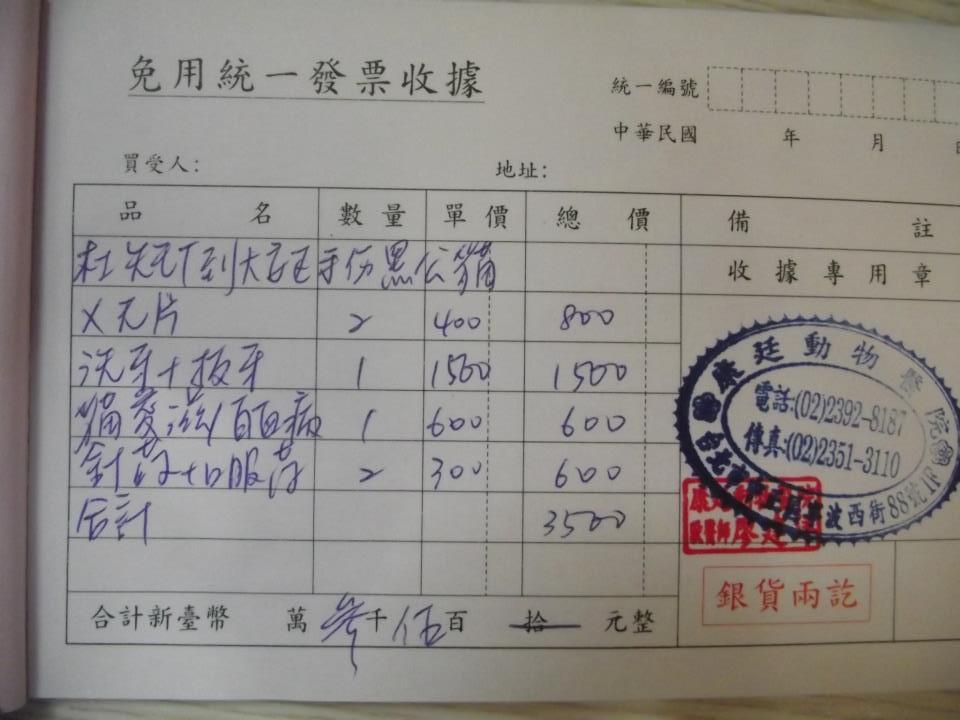 免用統一發票收據
統一編號
中華民國 年 月
買受人： 地址：
品名 數量 單價 總價 備註
手伤黑公貓
收據專用章
X光片 2 400 800
洗牙+拔牙 1 1500 1500
貓愛滋/白血病 1 600 600
針药+口服药 2 300 600
合計 3500
康廷動物醫院
電話:(02)2392-8187
傳真:(02)2351-3110
波西街88號1F
銀貨兩訖
合計新臺幣 萬 參仟 伍百 拾 元整